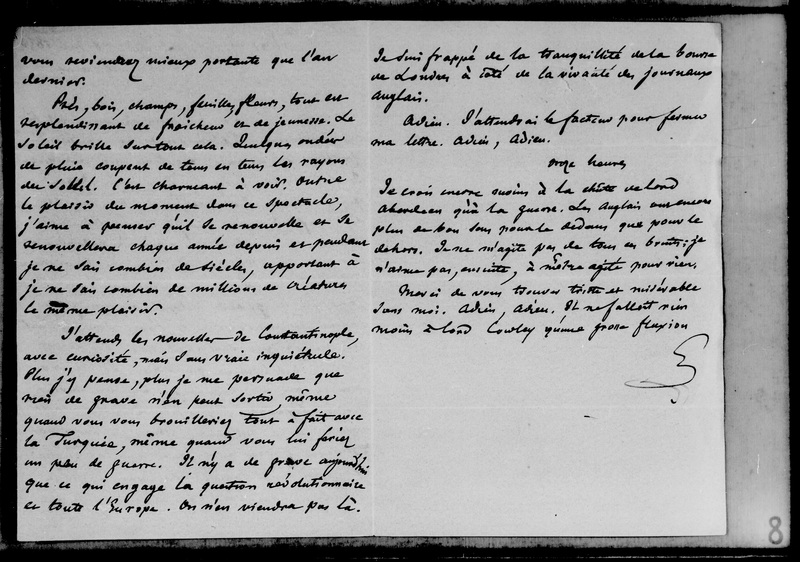 vous reviendrez mieux portante que l'an
dernier.
Prés, bois, champs, feuilles, fleurs, tout est
resplendissant de fraîcheur et de jeunesse. Le
soleil brille sur tout cela. Quelques ondées
de pluie coupent de tems en tems les rayons
du soleil. C'est charmant à voir. Outre
le plaisir du moment dans ce spectacle,
j'aime à penser qu'il se renouvelle et se
renouvellera chaque année depuis et pendant
je ne sais combien de siècles, apportant à
je ne sais combien de millions de créatures
le même plaisir.
J'attends les nouvelles de Constantinople,
avec curiosité, mais sans vraie inquiétude.
Plus j'y pense, plus je me persuade que
rien de grave n'en peut sortir, même
quand vous vous brouilleriez tout à fait avec
la Turquie, même quand vous lui feriez
un peu de guerre. Il n'y a de grave aujourd'hui
que ce qui engage la question révolutionnaire
et toute l'Europe. On n'en viendra pas là.
Je suis frappé de la tranquillité de la bourse
de Londres à côté de la vivacité des journaux
Anglais.
Adieu. J'attendrai le facteur pour fermer
ma lettre. Adieu, Adieu.
onze heures
Je crois encore moins à la chûte de Lord
Aberdeen qu'à la guerre. Les Anglais ont encore
plus de bon sens pour le dedans que pour le
dehors. Je ne m'agite pas de tous ces bruits ; je
n'aime pas, ensuite, à m'être agité pour rien.
Merci de vous trouver triste et misérable
sans moi. Adieu, Adieu. Il ne falloit rien
moins à lord Cowley qu'une grosse fluxion
8